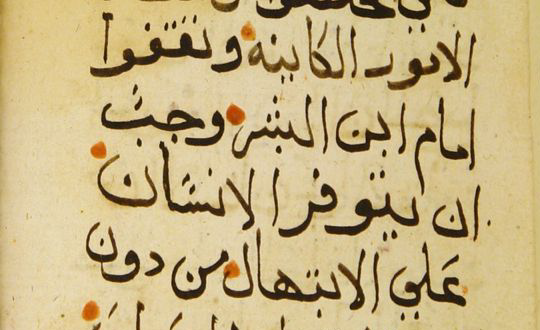 الامور الكاينه وتقفوا
امام ابن البشر وجب
ان يتوفر الانسان
علي الابتهال من دون